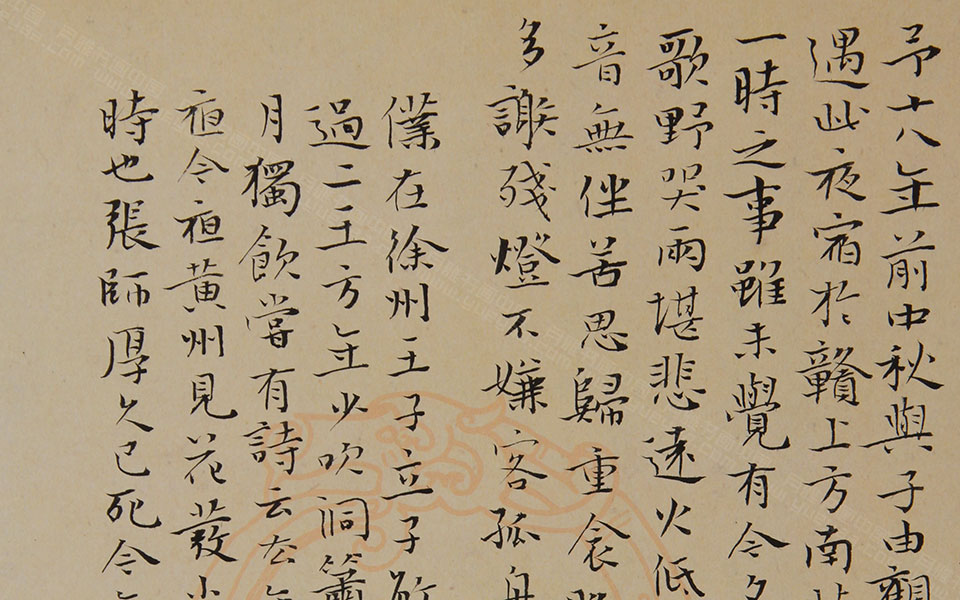 予十八年前中秋與子由觀
遇此夜宿於贛上方南
一時之事雖未覺有今夕
歌野哭兩堪悲遠火低
音無伴苦思歸重衾
多謝殘燈不嫌客孤舟
僕在徐州王子立子敏
過二王方年少吹洞簫
月獨飲嘗有詩云去年
夜今夜黃州見花發小
時也張師厚久已死今年